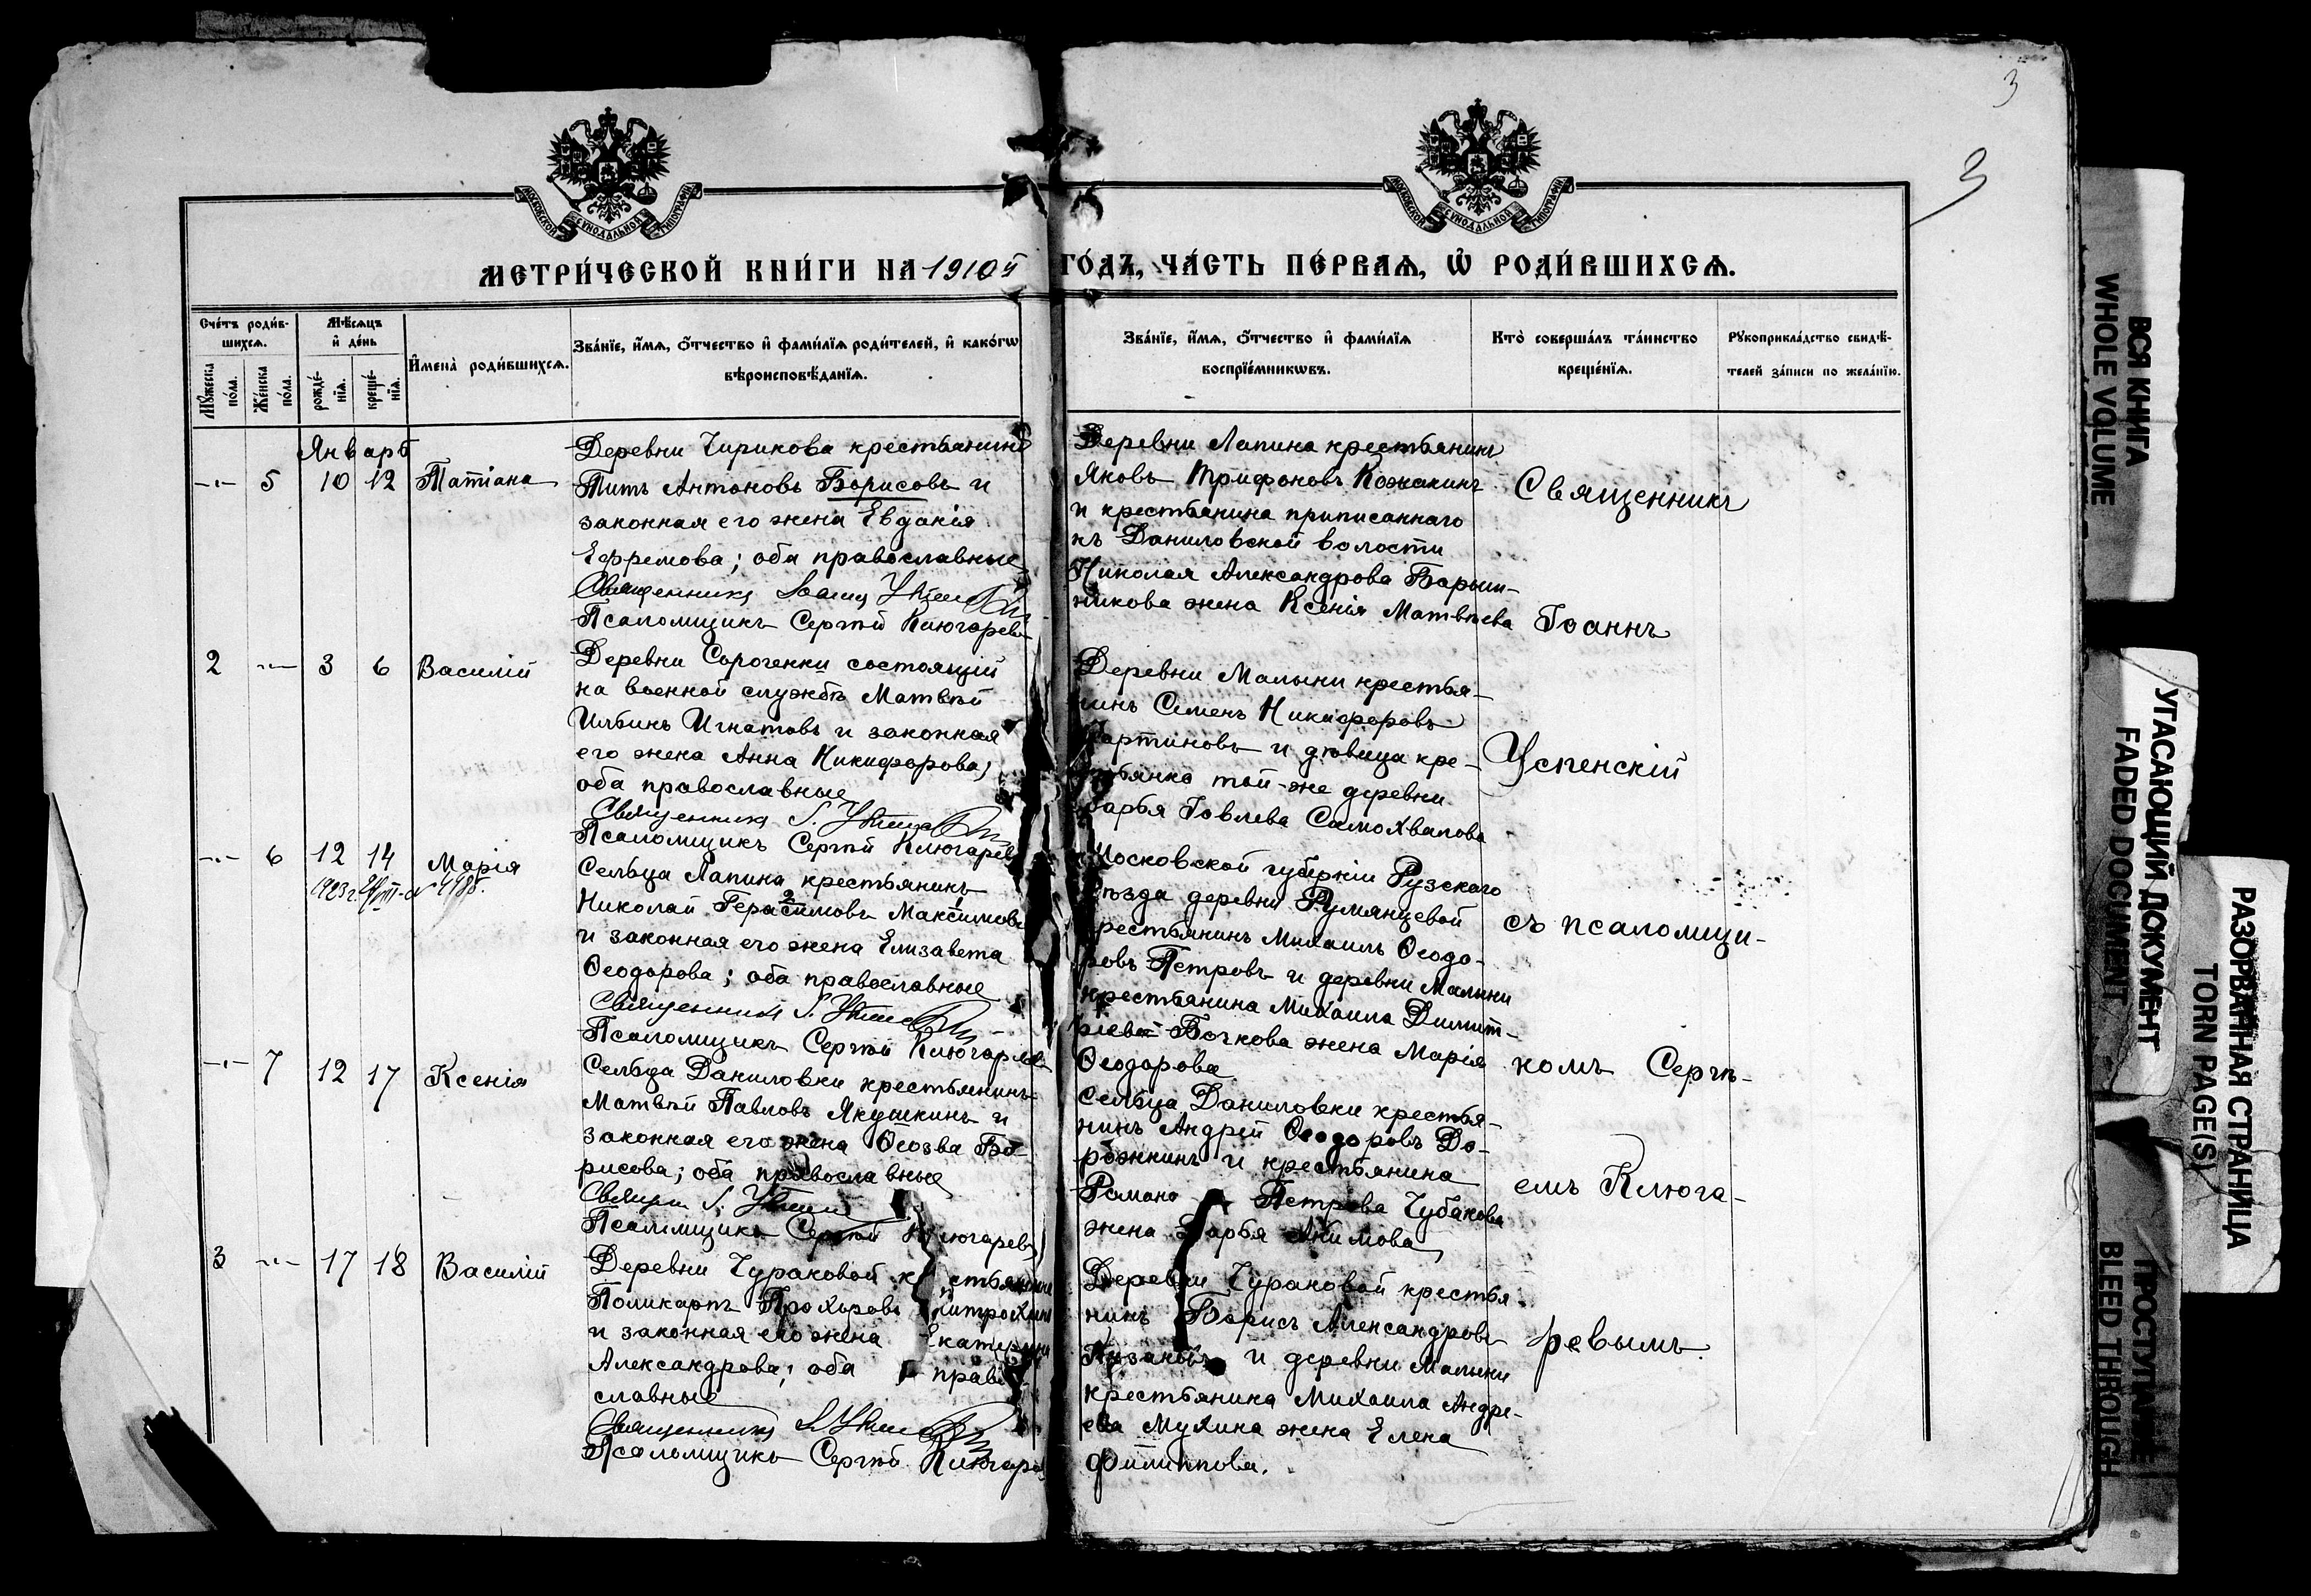 3
3
МОСКОВСКОЙ СѴНОДАЛЬНОЙ ТИПОГРАФІИ
МОСКОВСКОЙ СѴНОДАЛЬНОЙ ТИПОГРАФІИ
МЕТРИ́ЧЕСКОЙ КНИ́ГИ НА 1910й ГО́ДЪ, ЧА́СТЬ ПЕ́РВАѦ, Ѡ҆ РОДИ́ВШИХСѦ.
Сче́тъ роди́в-
шихсѧ.
Мꙋ́жеска по́ла.
Же́нска по́ла.
Мѣ́сѧцъ
и҆ де́нь
рожде́-
нїѧ.
креще́-
нїѧ.
И҆мена̀ роди́вшихсѧ.
Зва́нїе, и҆́мѧ, ѻ҆́тчество и҆ фами́лїѧ роди́телей, и҆ како́гѡ
вѣроисповѣ́данїѧ.
Зва́нїе, и҆́мѧ, ѻ҆́тчество и҆ фами́лїѧ
воспрїе́мникѡвъ.
Кто̀ соверша́лъ та́инство
креще́нїѧ.
Рꙋкоприкла́дство свидѣ́-
телей за́писи по жела́нїю.
Январь
-"- 5 10 12 Татіана
Деревни Чирикова крестьянинъ
Титъ Антоновъ Борисовъ и
законная его жена Евдокія
Ефремова; оба православные
Священникъ Іоаннъ Успенскій
Псаломщикъ Сергѣй Ключаревъ
Деревни Лапина крестьянинъ
Яковъ Трифоновъ Кожакинъ
и крестьянина приписаннаго
къ Даниловской волости
Николая Александрова Барыш-
никова жена Ксенія Матвѣева
2 -"- 3 6 Василій
Деревни Сорогенки состоящій
на военной службѣ Матвѣй
Ильинъ Игнатовъ и законная
его жена Анна Никифорова;
оба православные
Священникъ І. Успенскій
Псаломщикъ Сергѣй Ключаревъ
Деревни Малыни крестья-
нинъ Семенъ Никифоровъ
Мартиновъ и дѣвица кре-
стьянка той-же деревни
Дарья Іовлева Самохвалова
-"- 6 12 14 Марія
1923г.
Сельца Лапина крестьянинъ
Николай Герасимовъ Максимовъ
и законная его жена Елизавета
Ѳеодорова; оба православные
Священникъ І. Успенскій
Псаломщикъ Сергѣй Ключаревъ
Московской губерніи Рузскаго
уѣзда деревни Румянцевой
крестьянинъ Михаилъ Ѳеодо-
ровъ Петровъ и деревни Малыни
крестьянина Михаила Димит-
ріева Бочкова жена Марія
Ѳеодорова
-"- 7 12 17 Ксенія
Сельца Даниловки крестьянинъ
Матвѣй Павловъ Якушкинъ и
законная его жена Ѳеозва Бо-
рисова; оба православные
І. Успенскій
Псаломщикъ Сергѣй Ключаревъ
Сельца Даниловки крестья-
нинъ Андрей Ѳеодоровъ До-
рожкинъ и крестьянина
Романа Петрова Чубакова
жена Дарья Акимова
3 -"- 17 18 Василій
Деревни Чураковой крестьянинъ
Поликарпъ Прохоровъ Митрохинъ
и законная его жена Екатерина
Александрова; оба право-
славные
Священникъ І. Успенскій
Псаломщикъ Сергѣй Ключаревъ
Деревни Чураковой крестья-
нинъ Борисъ Александровъ
и деревни Малыни
крестьянина Михаила Андре-
ева Мухина жена Елена
Филиппова.
Священникъ
Іоаннъ
Успенскій
съ псаломщи-
комъ Сергѣ-
емъ Ключа-
ревымъ.
ВСЯ КНИГА
WHOLE VOLUME
УГАСАЮЩИЙ ДОКУМЕНТ
FADED DOCUMENT
РАЗОРВАННАЯ СТРАНИЦА
TORN PAGE(S)
ПРОСТУПАНИЕ
BLEED THROUGH